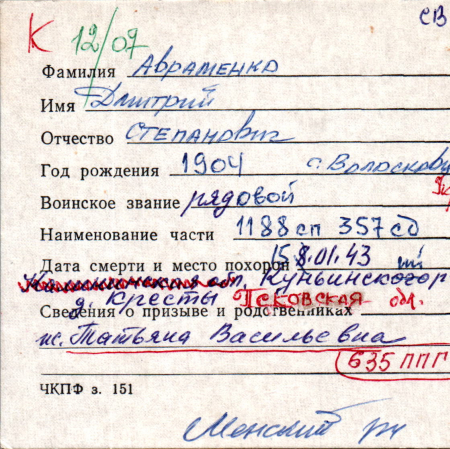 К 12/07 СВ
Фамилия Авраменко
Имя Дмитрий
Отчество Степанович
Год рождения 1904 с. Волоскову
Воинское звание рядовой
Наименование части 1188 сп 357 сд
Дата смерти и место похорон 15.01.43
обл. Куньинского р
д. Кресты Псковская обл.
Сведения о призыве и родственниках
ж. Татьяна Васильевна
635 ППГ
ЧКПФ з. 151
Менский рк